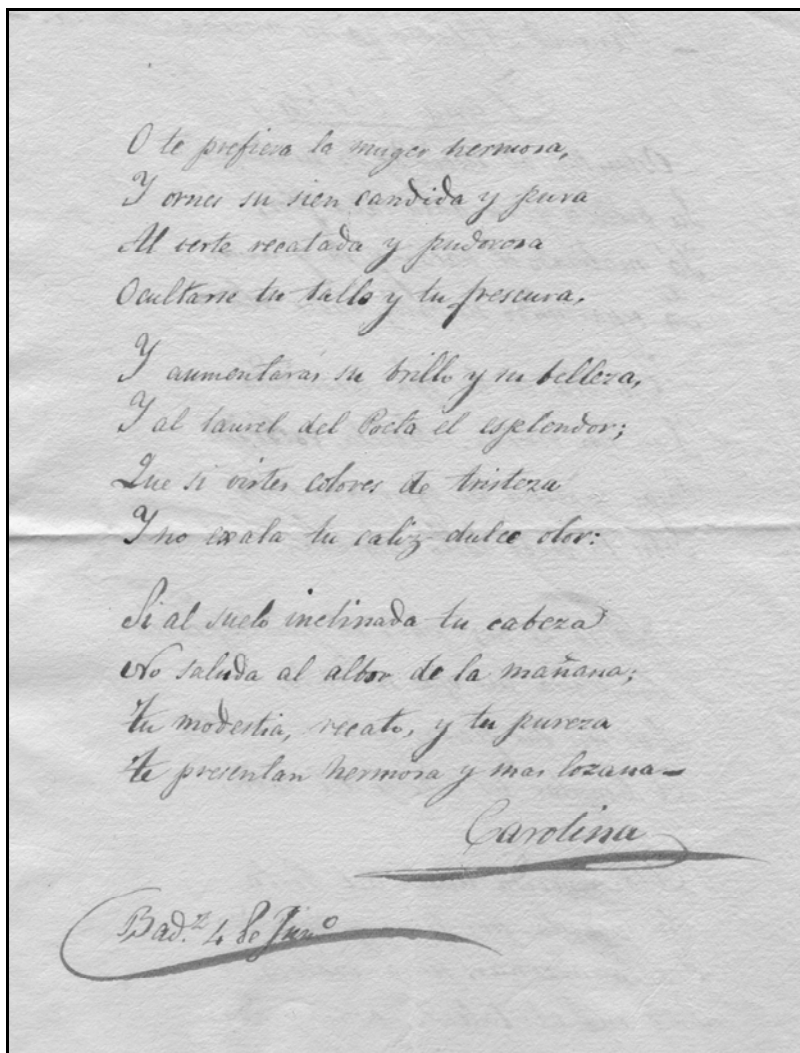 O te prefiera la muger hermosa,
Y ornes su sien candida y pura
Al verte recatada y pudorosa
Ocultarse tu tallo y tu frescura.
Y aumentaras su brillo y su belleza,
Y al laurel del Poeta el esplendor;
Que si vistes colores de tristeza
Y no exala tu caliz dulce olor:
Si al suelo inclinada tu cabeza
No saluda al albor de la mañana;
Tu modestia, recato, y tu pureza
Te presentan hermosa y mas lozana—
Carolina
Bad.z 4 de Jun.o